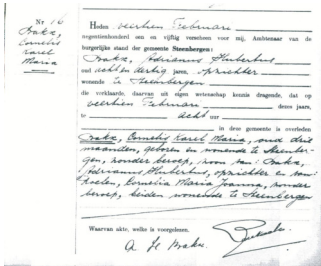 Nr 16
Braks,
Cornelis
Karel
Maria
Heden veertien Februari
negentienhonderd een en vijftig verscheen voor mij, Ambtenaar van de
burgerlijke stand der gemeente Steenbergen:
Braks, Adrianus Hubertus,
oud acht en dertig jaren, opzichter
wonende te Steenbergen
die verklaarde, daarvan uit eigen wetenschap kennis dragende, dat op
veertien Februari dezes jaars,
te acht uur
in deze gemeente is overleden
Braks, Cornelis Karel Maria, oud drie
maanden, geboren en wonende te Steenber-
gen, zonder beroep, zoon van: Braks,
Adrianus Hubertus, opzichter en van:
Roelen, Cornelia Maria Joanna, zonder
beroep, beiden wonende te Steenbergen
Waarvan akte, welke is voorgelezen.
A H Braks